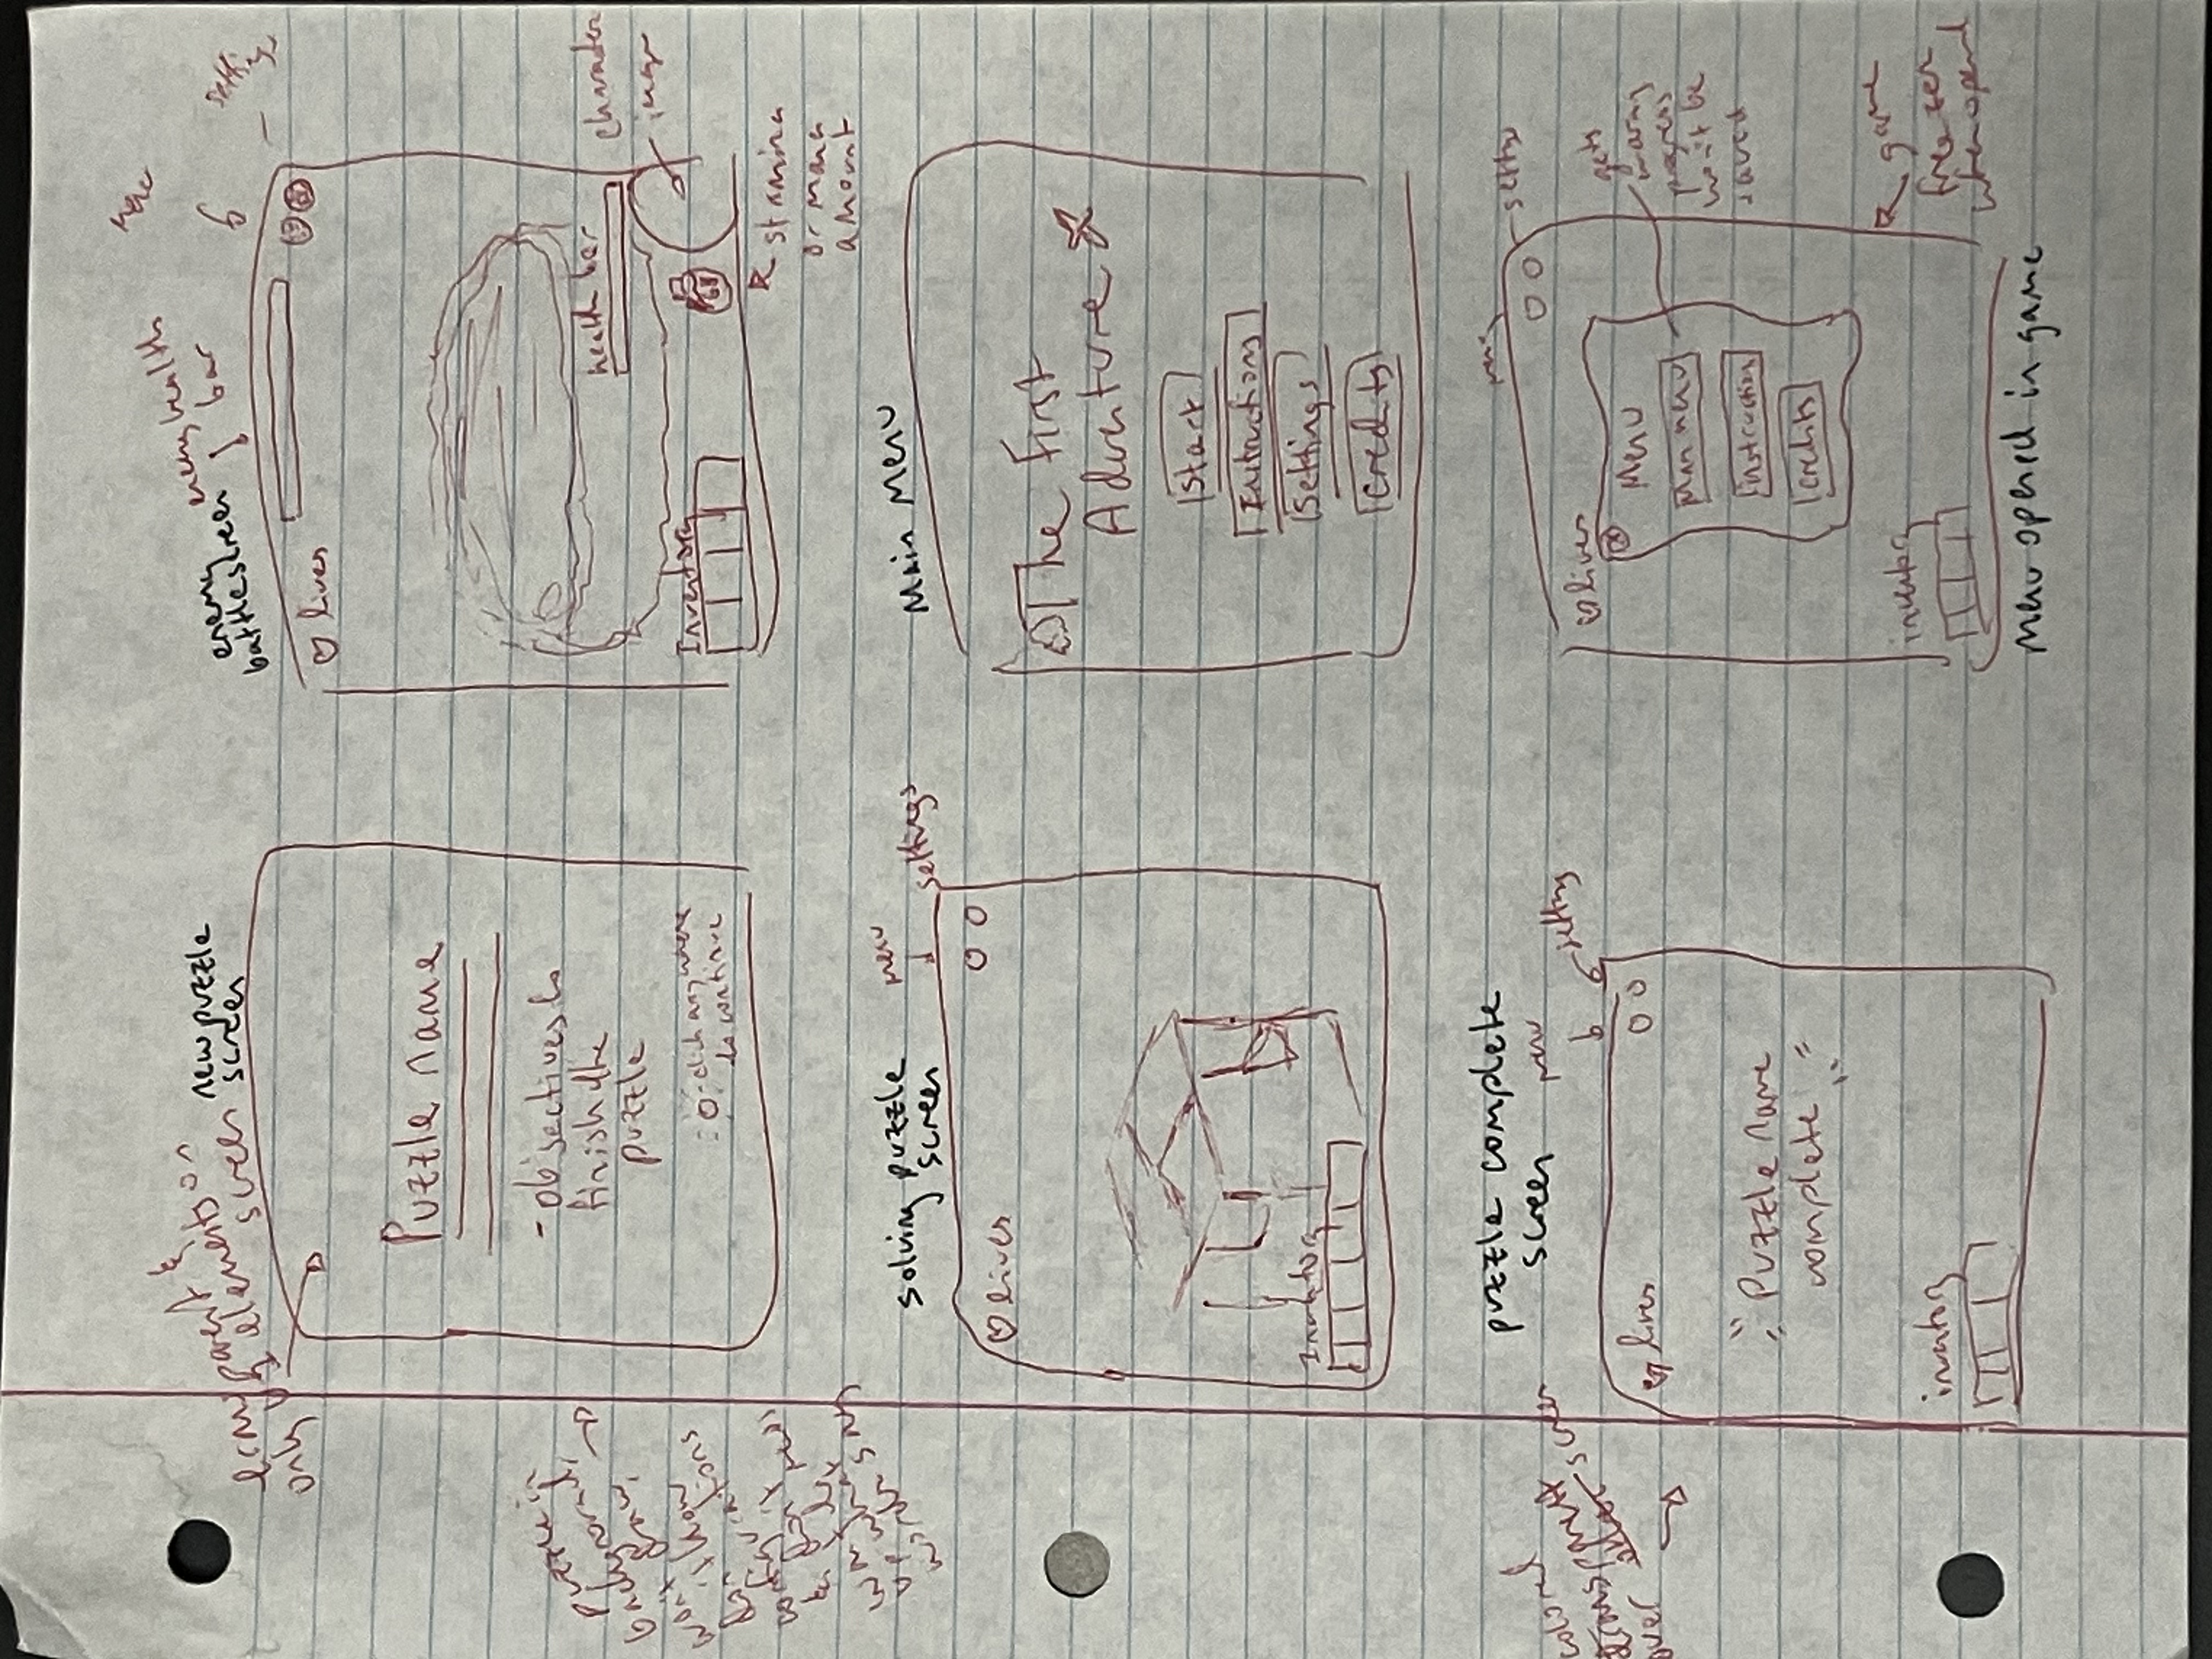 transparent &
only elements on
screen
new puzzle
screen
Puzzle name
- objectives to
finish the
puzzle
click anywhere
to continue
puzzle in
background,
won't draw,
don't know
configurations
& don't
want to mess
up what
words say
enemy
battle screen
enemy health
bar
menu
settings
lives
health bar
character
image
Inventory
stamina
or mana
amount
solving puzzle
screen
menu
settings
lives
Inventory
Main Menu
The First
Adventure
Start
Instructions
Settings
Credits
puzzle complete
screen
menu
setting
colored
transparent
over screen
lives
Puzzle name
complete
inventory
menu
setting
lives
Menu
Main menu
Instruction
Credits
gets
warning
progress
won't be
saved
game
freezes
when opened
inventory
Menu opened in game